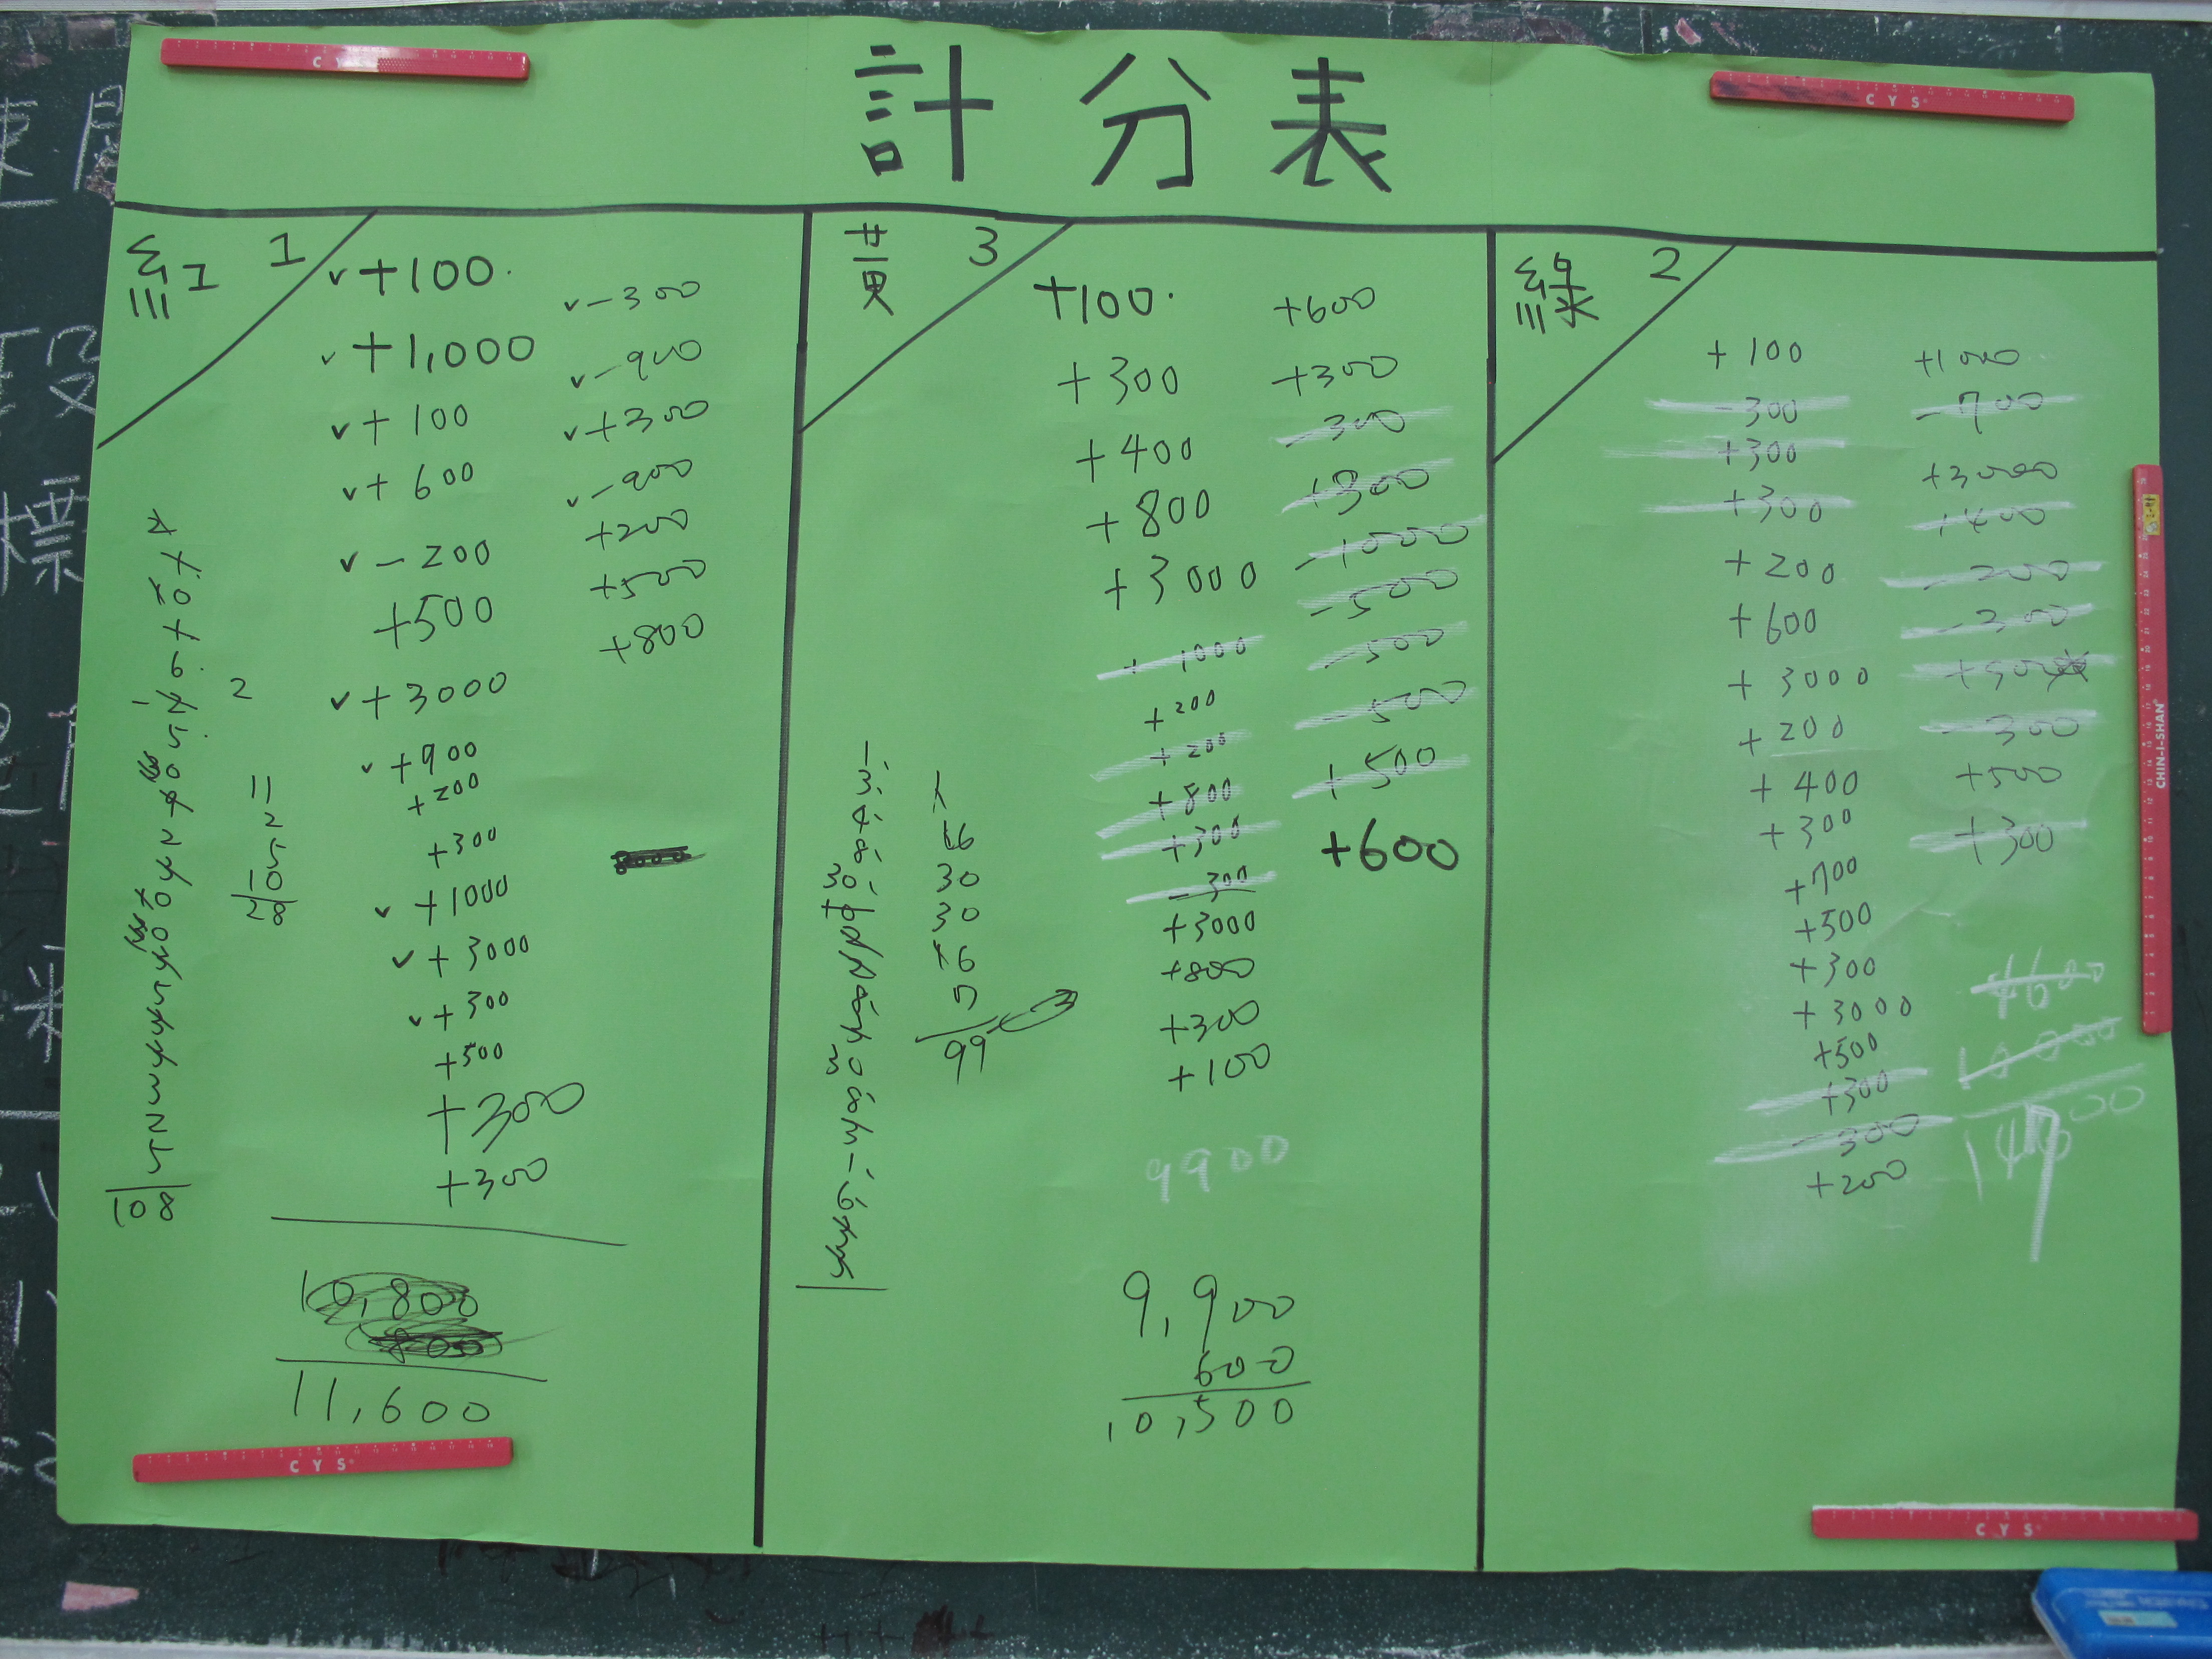 計分表
紅 1
+100.
+1,000
+100
+600
-200
+500
+3000
+900
+200
+300
+1000
+3000
+300
+500
+300
+300
-300
-900
+300
-900
+200
+500
+800
10,800
800
11,600
黃 3
+100.
+300
+400
+800
+3000
+1000
+200
+200
+800
+300
-300
+3000
+800
+300
+100
+600
+300
-300
+300
-1000
-500
-500
-500
+500
+600
16
30
30
16
7
99
9900
9,900
600
10,500
綠 2
+100
-300
+300
+300
+200
+600
+3000
+200
+400
+300
+700
+500
+300
+3000
+500
+300
-300
+200
+1000
-700
+3000
+400
-200
-300
-300
+500
+300
4600
10000
CYS
CYS
CHIN-I-SHAN
CYS
CYS